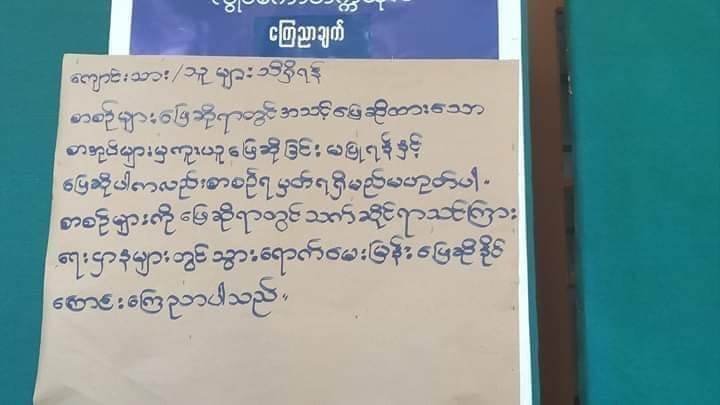 ကြေညာချက်
ကျောင်းသား/သူ များ သိရှိရန်
စာစဉ်များဖြေဆိုရာတွင် အသင့်ဖြေဆိုထားသော
စာအုပ်များမှကူးယူဖြေဆိုခြင်း မပြုရန်နှင့်
ဖြေဆိုပါကလည်းစာစဉ်ရမှတ်ရရှိမည်မဟုတ်ပါ။
စာစဉ်များကို ဖြေဆိုရာတွင် သက်ဆိုင်ရာသင်ကြား
ရေးဌာနများတွင် သွားရောက်မေးမြန်းဖြေဆိုနိုင်
ကြောင်းကြေညာပါသည်။